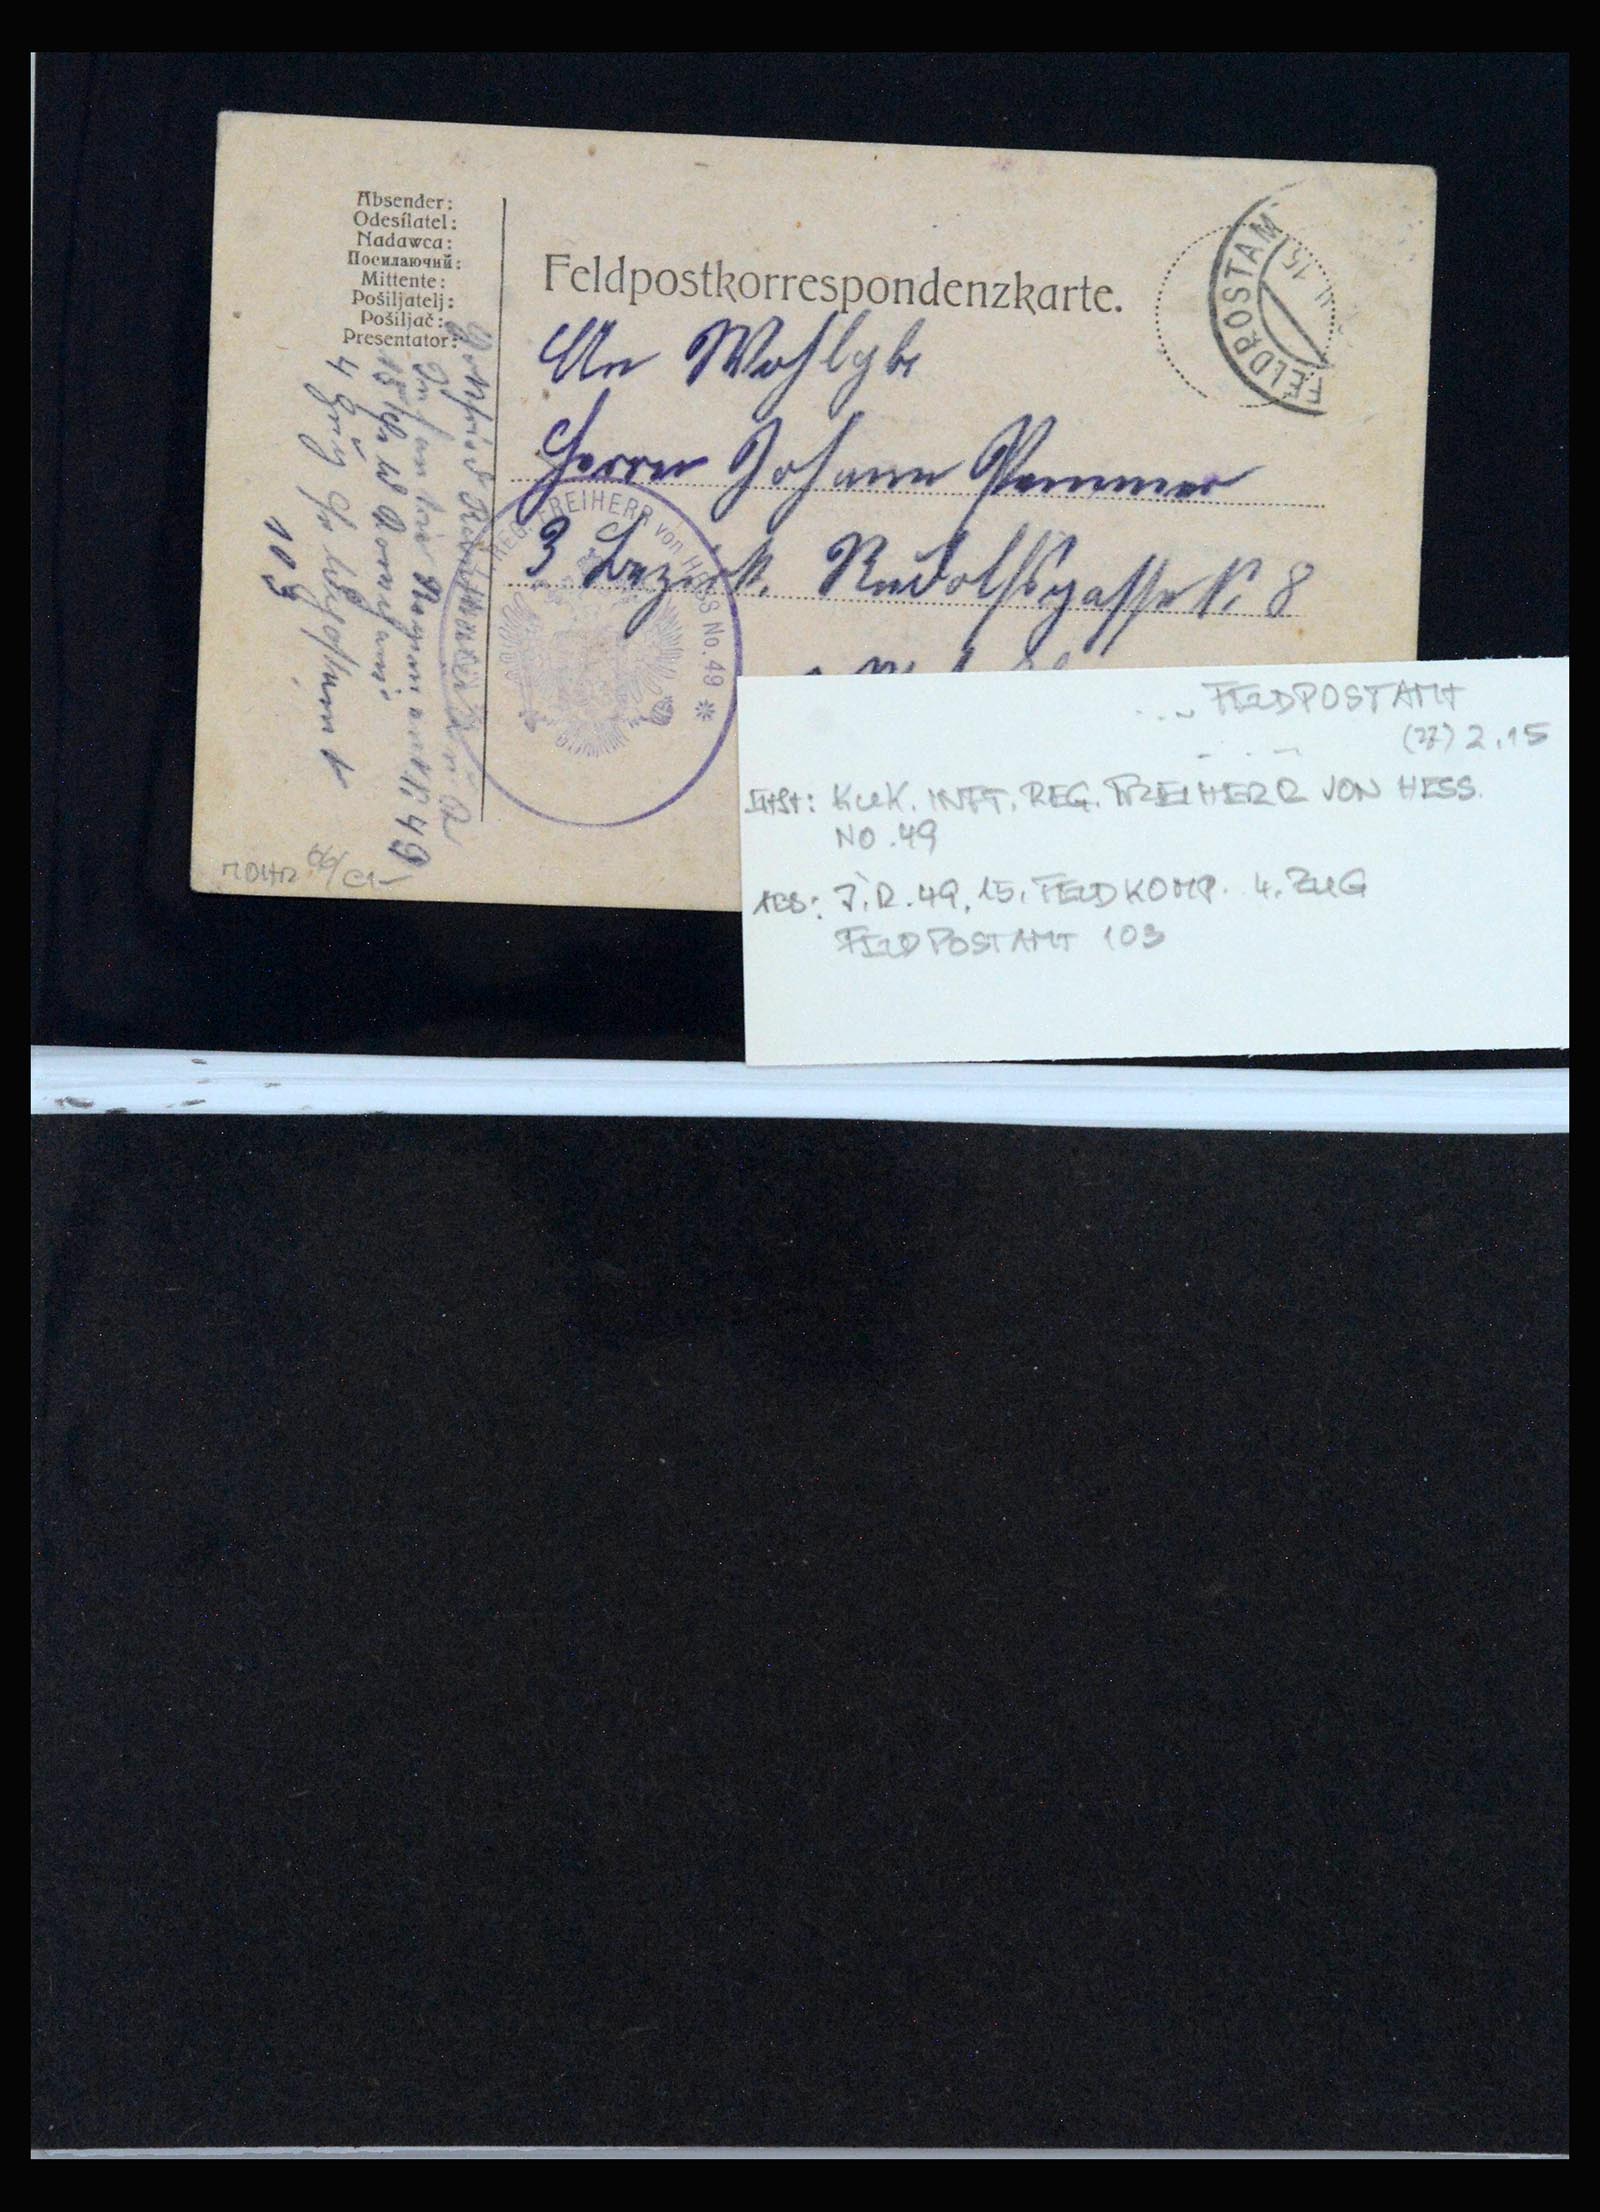 Absender:
Odesílatel:
Nadawca:
Посилаючий:
Mittente:
Pošiljatelj:
Pošiljač:
Presentator:
Infanterie Regiment Nr 49
4 Zug
103
Feldpostkorrespondenzkarte.
An Wohlgb
Herrn Johann Pammer
3 Bezirk. Rudolfsgasse N. 8
FELDPOSTAM
II 15
REG. FREIHERR von HESS No. 49 *
FELDPOSTAMT
2.15
KUK. INFT. REG. FREIHERR VON HESS.
NO. 49
ABS: J.R. 49, 15. FELDKOMP. 4. ZUG
FELDPOSTAMT 103